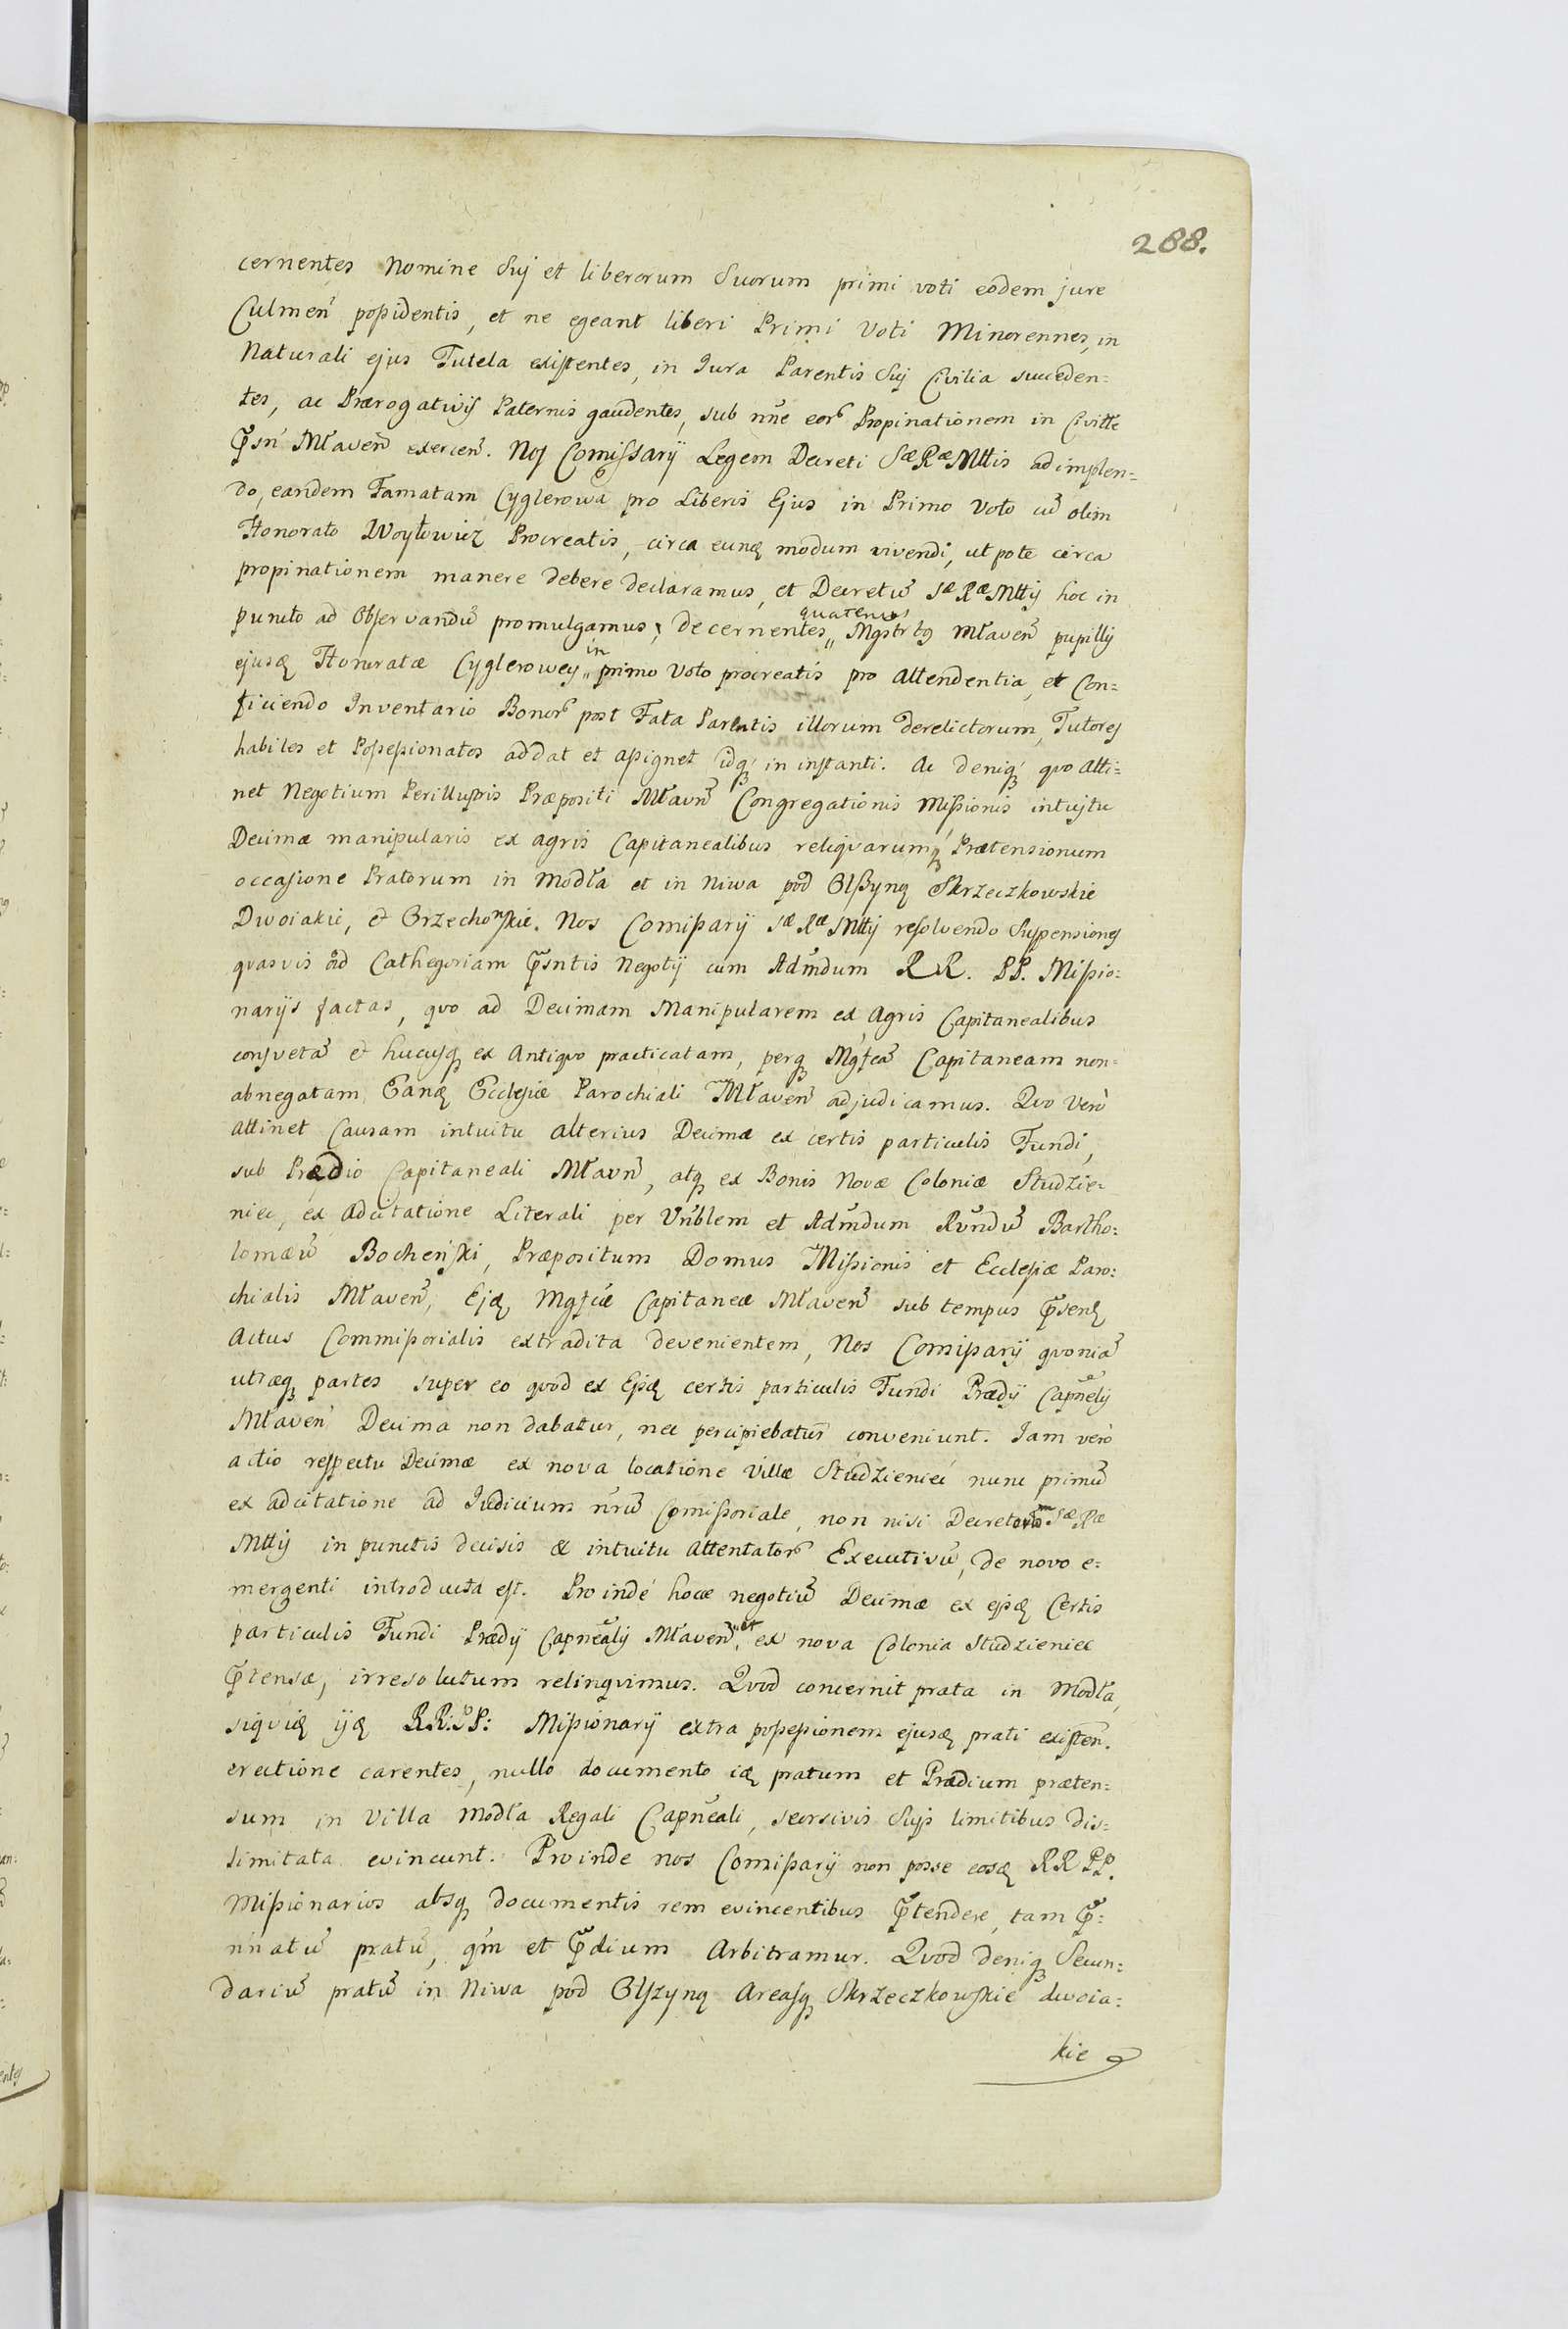 288.
cernentes Nomine Suj et liberorum Suorum primi voti eodem jure
Culmeñ poßidentis, et ne egeant liberi Primi Voti Minorennes, in
Naturali ejus Tutela existentes, in Jura Parentis Suj Civilia succeden=
tes, ac Prærogativis Paternis gaudentes, sub nñe eor Propinationem in Civitte
Pṡñ Mławeñ exerceñ. Nos Comissarÿ Legem Decreti Sæ Ræ Mttis adimplen=
do, eandem Famatam Cyglerowa pro Liberis Ejus in Primo Voto cū olim
Honorato Woytowicz Procreatis, circa eunq modum vivendi, ut pote circa
propinationem manere debere declaramus, et Decretū Sæ Ræ Mttÿ hoc in
puncto ad Observandū promulgamus; decernentes quatenus „ Mgstrtg Mławeñ pupillÿ
ejusq Honoratæ Cyglerowey „ in primo Voto procreatis pro attendentia, et Con=
ficiendo Inventario Bonor post Fata Parentis illorum derelictorum, Tutores
habiles et Poßeßionatos addat et aßignet idq in instanti. Ac deniq quo atti=
net Negotium Perillustris Præpositi Mławñ Congregationis Mißionis intuitu
Decimæ manipularis ex agris Capitanealibus reliquarumq Prætensionum
occasione Pratorum in Modła et in Niwa pod Olßynq Skrzeczkowskie
Dwoiakie, et Grzechoñskie. Nos Comißarÿ Sæ Ræ Mttÿ resolvendo Suspensiones
quasvis ad Cathegoriam Pṡntis Negotÿ cum Admdum RR. PP. Mißio=
narÿs factas, quo ad Decimam Manipularem ex Agris Capitanealibus
consvetā et hucusq ex Antiquo practicatam, perq Mgfcā Capitaneam non=
abnegatam Eanq Ecclesiæ Parochiali Mławeñ adjudicamus. Quo Verò
attinet Causam intuitu alterius Decimæ ex certis particulis Fundi,
sub Prædio Capitaneali Mławñ, atq ex Bonis Novæ Coloniæ Studzie=
niec, ex adcitatione Literali per Vñblem et Admdum Rvndū Bartho=
lomæū Bocheński, Præpositum Domus Mißionis et Ecclesiæ Paro=
chialis Mławeñ, Ejq Mgfcæ Capitaneæ Mławeñ sub tempus Pṡenq
Actus Commißorialis extradita devenientem, Nos Comißarÿ quoniā
utræq partes super eo quod ex Ejsq certis particulis Fundi Prædÿ Capñelÿ
Mławeñ Decima non dabatur, nec percipiebatur conveniunt. Jam verò
actio respectu Decimæ ex nova locatione Villæ Studzieniec nunc primū
ex adcitatione ad Judicium nrū Comißoriale, non nisi Decretorum Sæ Ræ
Mttÿ in punctis decisis & intuitu Attentator Executivū, de novo e=
mergenti introducta est. Proindè hocce negotiū Decimæ ex ejsq Certis
particulis Fundi Prædÿ Capnealÿ Mławeñ, „ et ex nova Colonia Studzieniec
Ptensæ, irresolutum relinquimus. Quod concernit prata in Modła,
siquiq ijq RR: PP: Mißionarÿ extra poßeßionem ejusq prati existeñ.
erectione carentes, nullo documento idq pratum et Prædium præten=
sum in Villa Modła Regali Capñeali, seorsivis Suis limitibus dis=
limitata evincunt. Proinde nos Comißarÿ non posse eosq RR PP.
Mißionarios absq documentis rem evincentibus Ptendere, tam P=
nñatū pratū, qm et Pdium Arbitramur. Quod deniq Secun=
dariū pratū in Niwa pod Olszynq Areasq Skrzeczkowskie dwoia=
kie